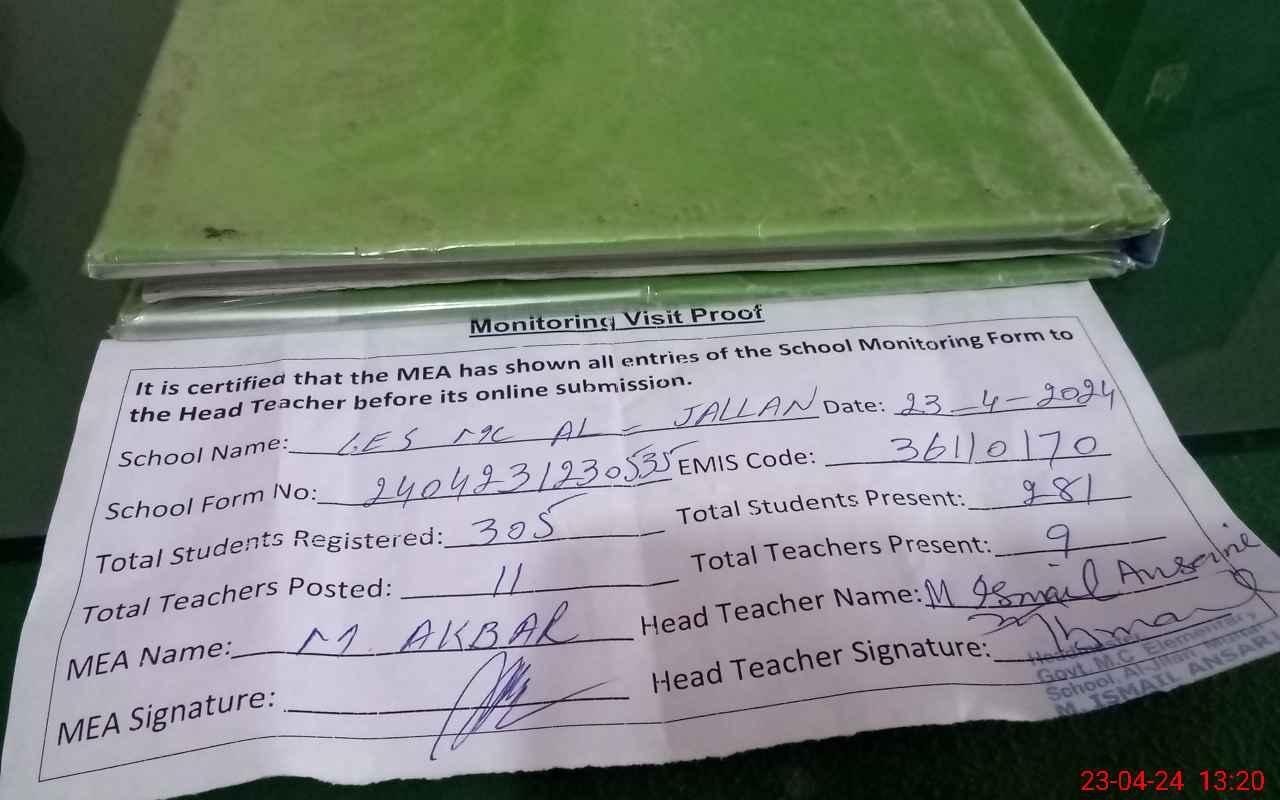 Monitoring Visit Proof
It is certified that the MEA has shown all entries of the School Monitoring Form to
the Head Teacher before its online submission.
School Name: G.ES MC AL - JALLAN Date: 23-4-2024
School Form No: 240423123053535 EMIS Code: 36110170
Total Students Registered: 305 Total Students Present: 281
Total Teachers Posted: 11 Total Teachers Present: 9
MEA Name: M. AKBAR Head Teacher Name: M Ismail Ansari
MEA Signature: Head Teacher Signature:
Govt. M.C. Elementary
School Al Jilan
M. ISMAIL ANSARI
23-04-24 13:20